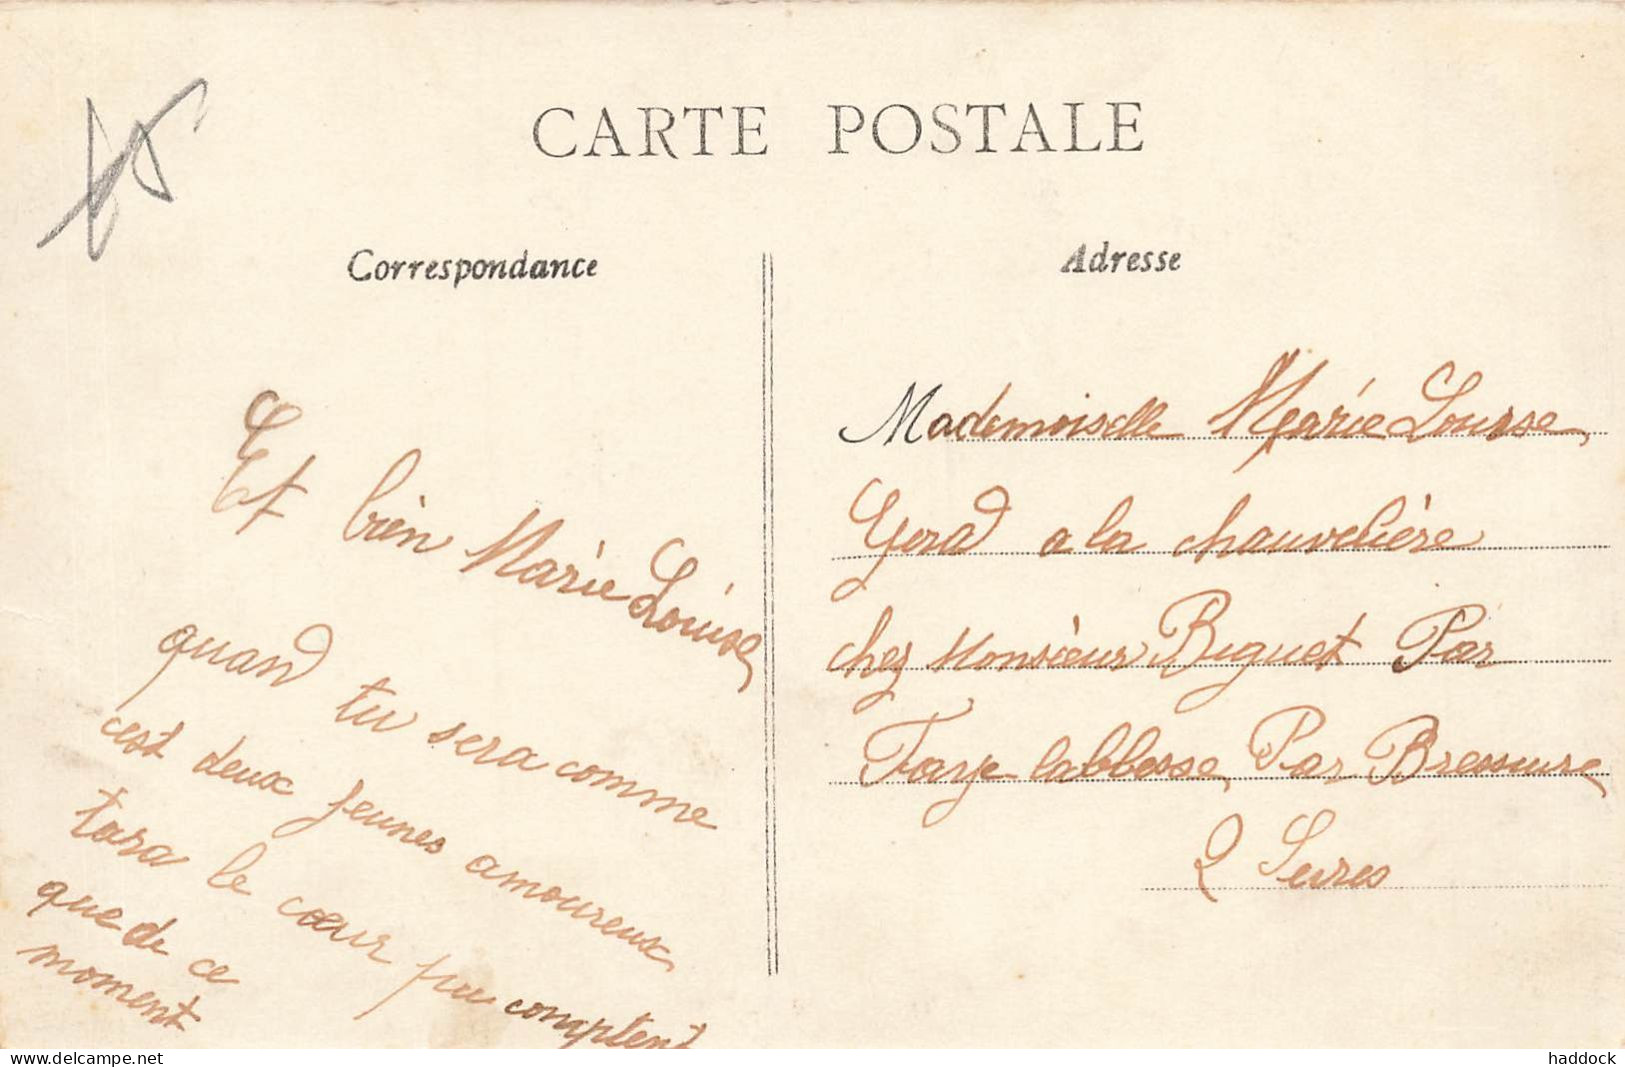 CARTE POSTALE
Correspondance
Et bien Marie Louise,
quand tu sera comme
cest deux jeunes amoureux,
tora le cœur plu comptent
que de ce
moment
Adresse
Mademoiselle Marie Lourse,
Gorad a la chauvelière
chez Monsieur Biguet Par
Faye labbesse, Par Bressuire,
2 Sevres
haddock